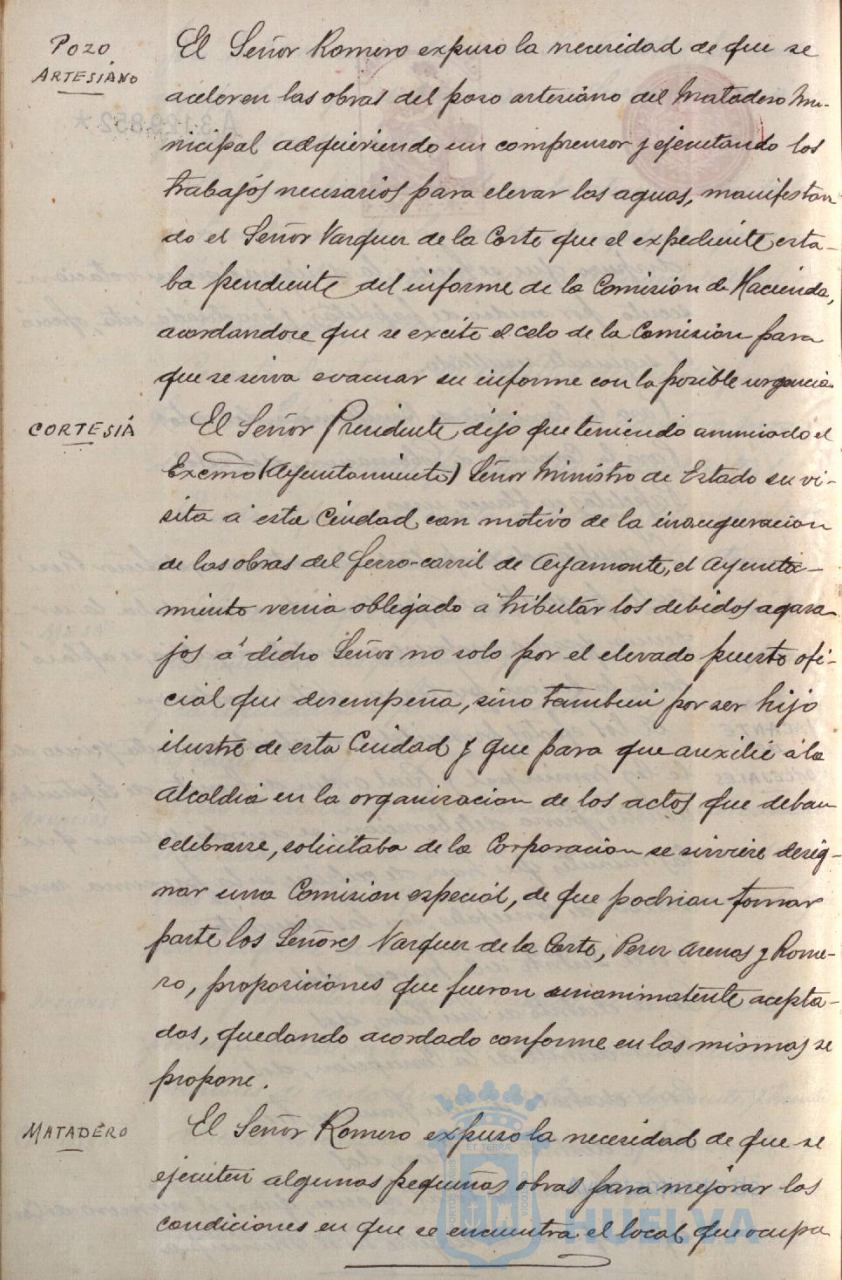 POZO
ARTESIANO
El Señor Romero expuso la necesidad de que se
aceleren las obras del poso artesiano del Matadero Mu-
nicipal adquiriendo un compresor y ejecutando los
trabajos necesarios para elevar las aguas, manifestan
do el Señor Vazquez de la Corte que el expediente esta-
ba pendiente del informe de la Comision de Hacienda,
acordandose que se excite el celo de la Comision para
que se sirva evacuar su informe con la posible urgencia
CORTESIA
El Señor Presidente dijo que teniendo anunciado el
Excmo (Ayuntamiento) Señor Ministro de Estado su vi-
sita á esta Ciudad con motivo de la inauguracion
de las obras del ferro-carril de Ayamonte, el Ayunta-
miento venia obligado á tributar los debidos agasa
jos á dicho Señor no solo por el elevado puesto ofi-
cial que desempeña, sino tambien por ser hijo
ilustre de esta Ciudad y que para que auxilie á la
Alcaldia en la organizacion de los actos que deban
celebrarse, solicitaba de la Corporacion se sirviese desig-
nar una Comision especial, de que podrian formar
parte los Señores Vazquez de la Corte, Perez Arenas y Rome-
ro, proposiciones que fueron unanimatente acepta-
das, quedando acordado conforme en las mismas se
propone.
MATADERO
El Señor Romero expuso la necesidad de que se
ejecuten algunas pequeñas obras para mejorar las
condiciones en que se encuentra el local que ocupa
HUELVA